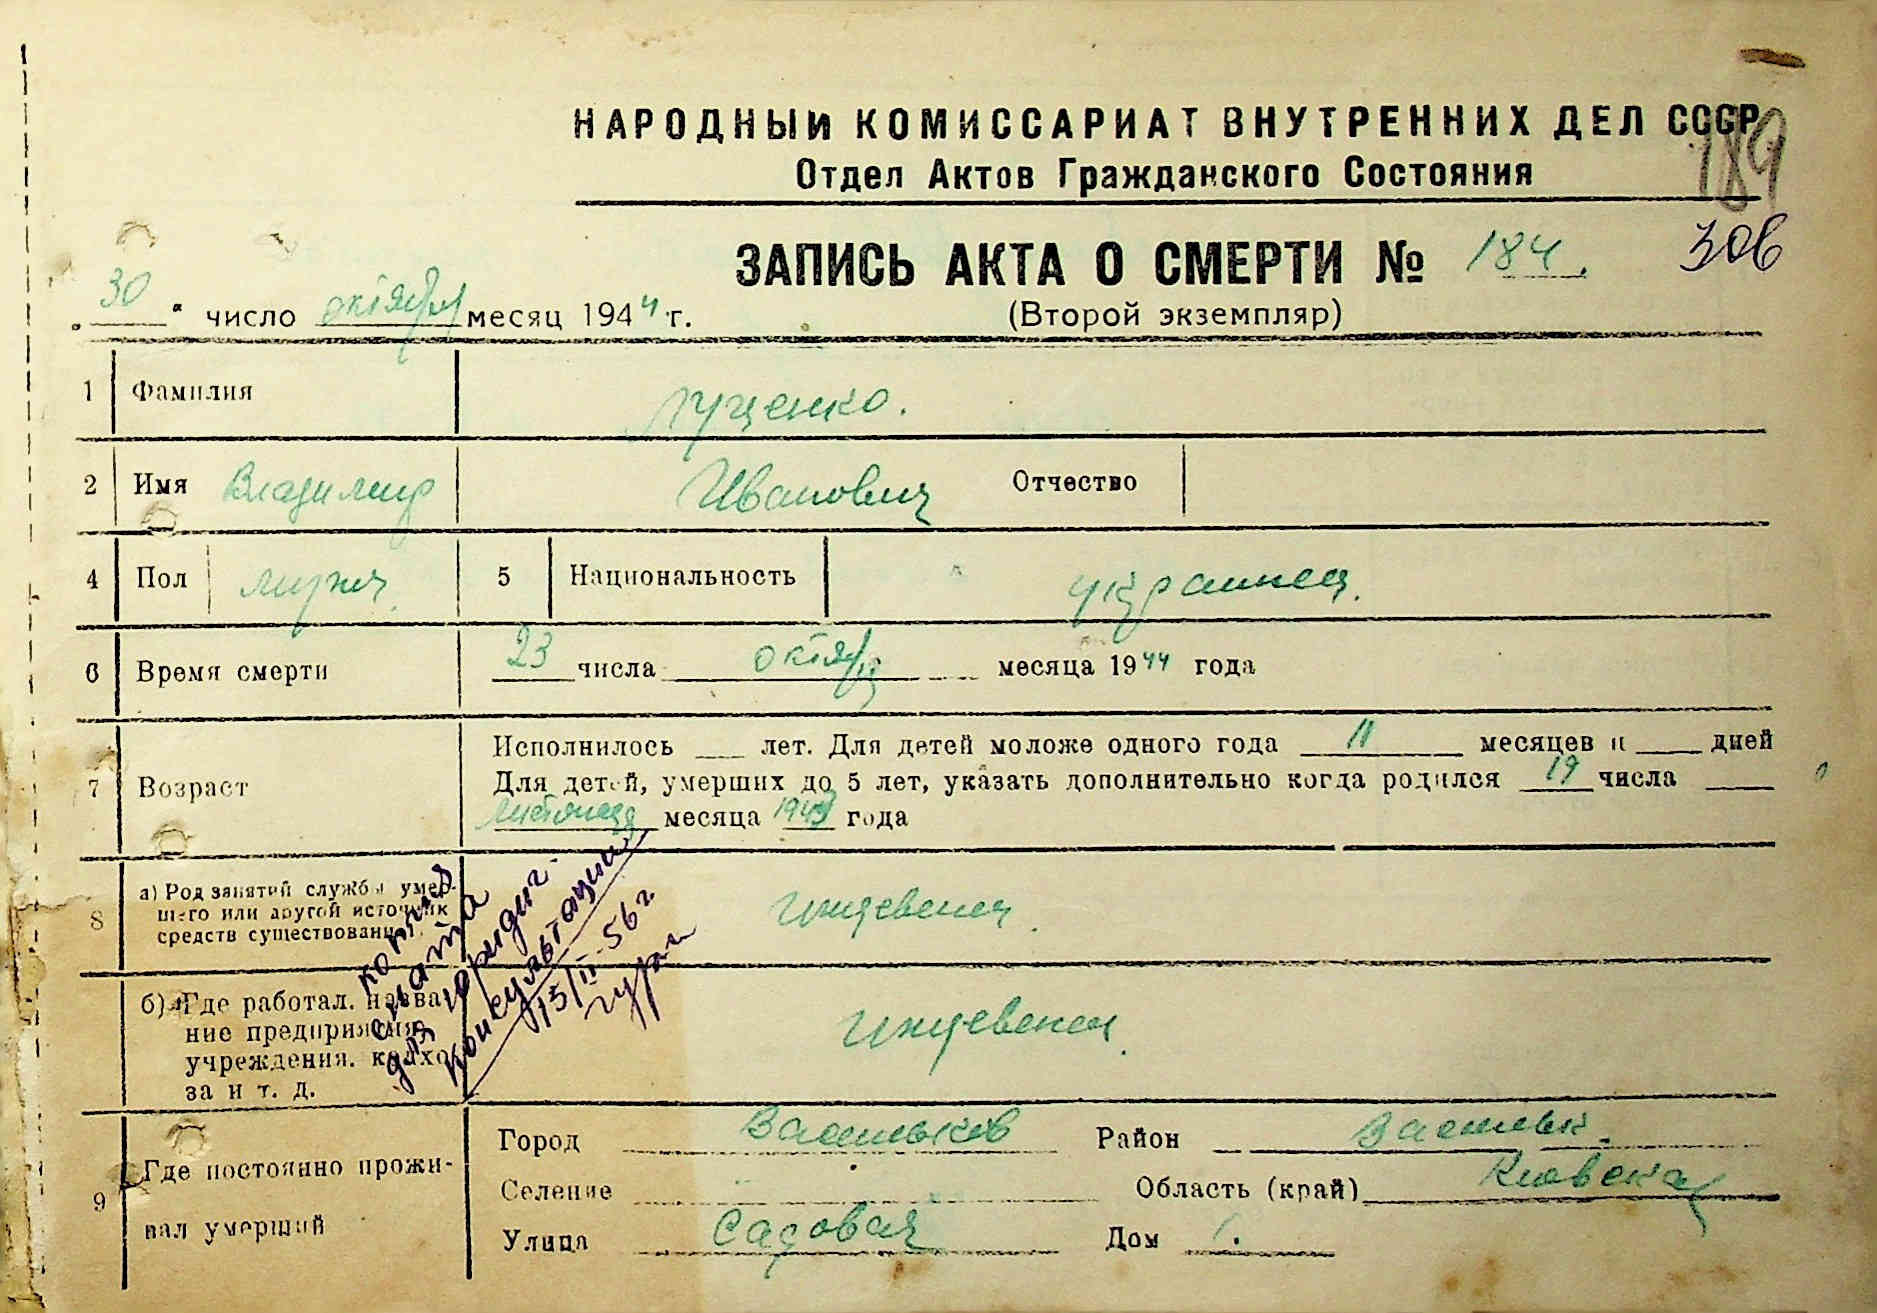 НАРОДНЫЙ КОМИССАРИАТ ВНУТРЕННИХ ДЕЛ СССР
189
Отдел Актов Гражданского Состояния
ЗАПИСЬ АКТА О СМЕРТИ № 184.
306
„30“ число октября месяц 1944 г.
(Второй экземпляр)
1 Фамилия Луценко.
2 Имя Владимир Иванович Отчество
4 Пол мужч. 5 Национальность украинец.
6 Время смерти 23 числа октября месяца 1944 года
7 Возраст
Исполнилось ___ лет. Для детей моложе одного года 11 месяцев и ___ дней
Для детей, умерших до 5 лет, указать дополнительно когда родился 19 числа
листопада месяца 1943 года
8 а) Род занятий службы умер-
шего или другой источник
средств существования
иждевенец.
копия
снята
для юридич.
консультации
15/II-56 г.
б) Где работал. назва-
ние предприятия,
учреждения. колхо-
за и т. д.
иждевенец.
9 Где постоянно прожи-
вал умерший
Город Васильков Район Васильк.
Селение Область (край) Киевская
Улица Садовая Дом